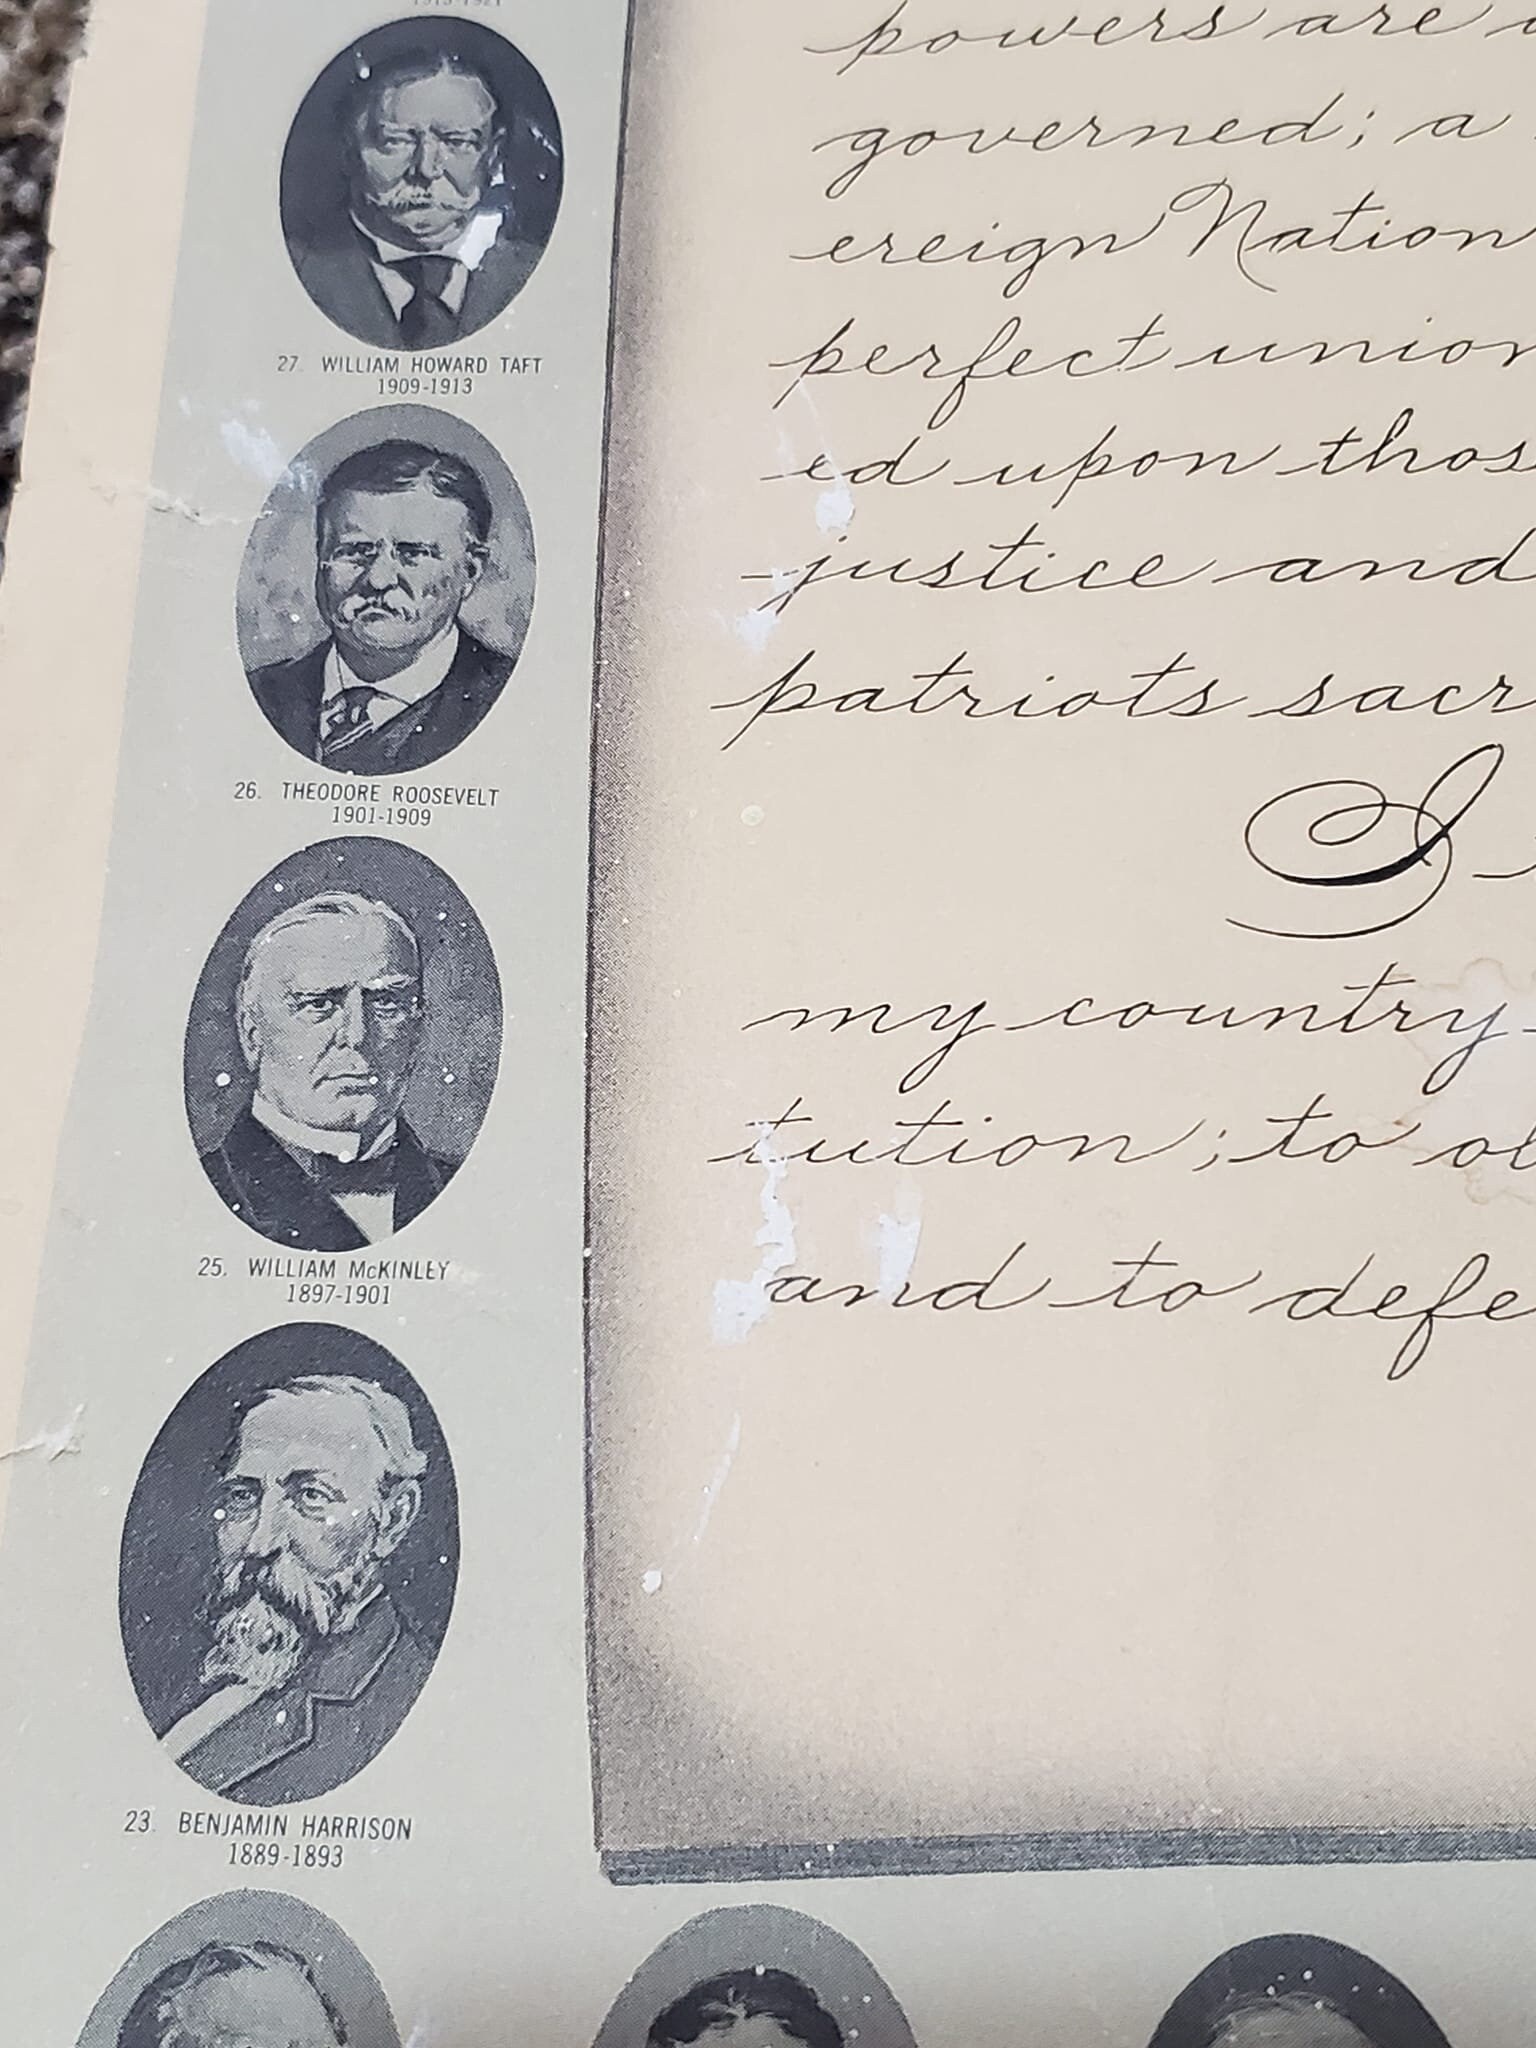 1913-1921
27. WILLIAM HOWARD TAFT
1909-1913
26. THEODORE ROOSEVELT
1901-1909
25. WILLIAM McKINLEY
1897-1901
23. BENJAMIN HARRISON
1889-1893
powers are
governed; a
ereign Nation
perfect union
ed upon thos
justice and
patriots sacr
I
my country
tution; to ob
and to defe